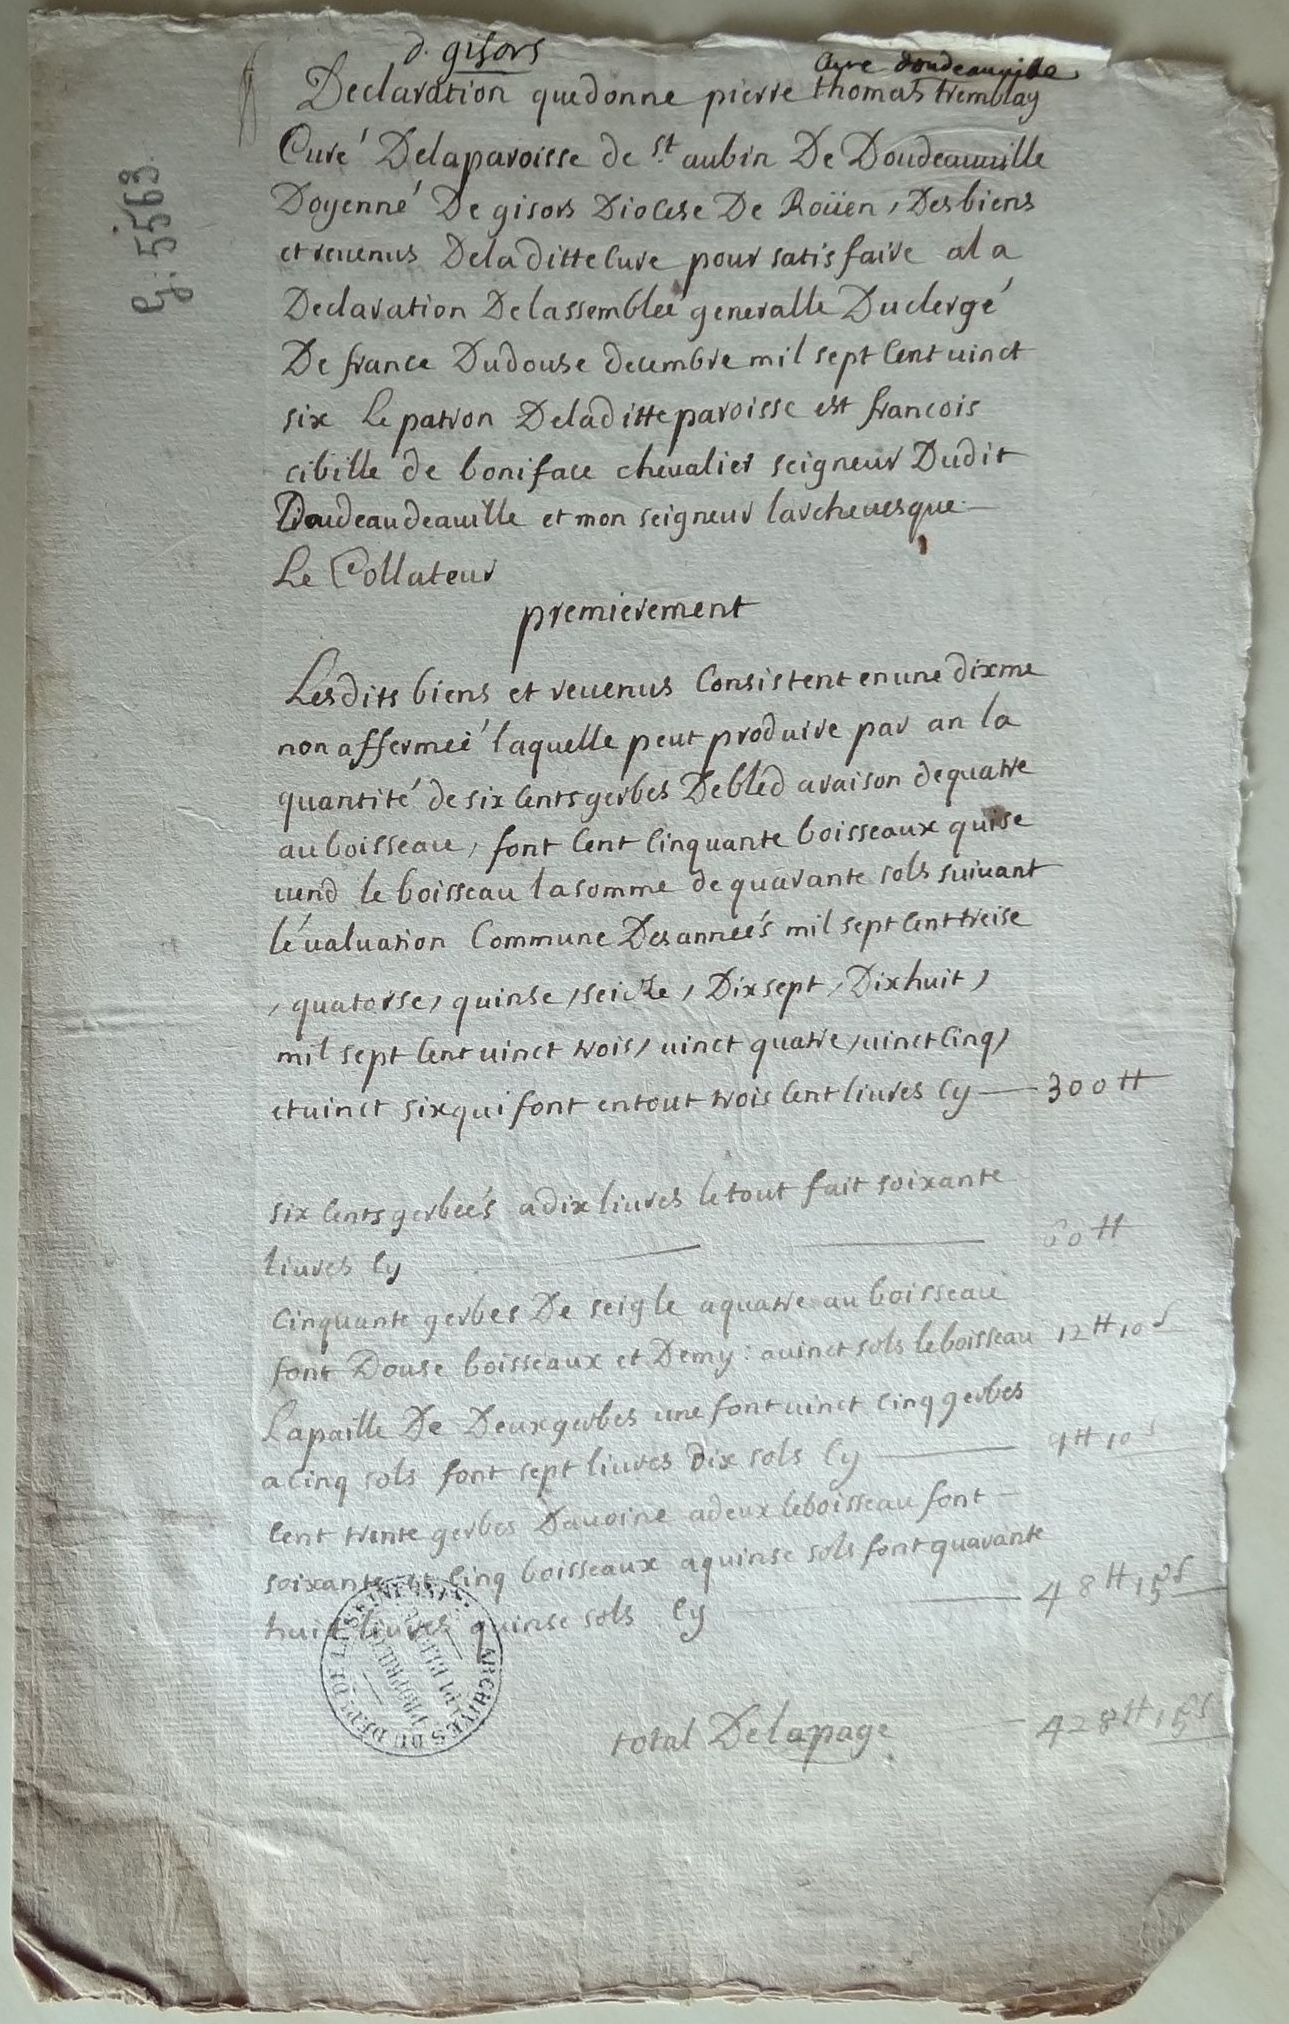 d. gisors
Cure doudeauville
G. 5563.
Declaration que donne pierre thomas tremblay
Curé De la paroisse de St. aubin De Doudeauuille
Doyenné De gisors Diocese De Roüen, Des biens
et reuenus De la ditte Cure pour satisfaire a la
Declaration De lassemblée generalle Du clergé
De france Du douse decembre mil sept Cent uinct
six Le patron De la ditte paroisse est francois
cibille de boniface chevalier seigneur Dudit
Doudeaudeauille et mon seigneur larcheuesque
Le Collateur
premierement
Lesdits biens et reuenus Consistent en une dixme
non affermeé laquelle peut produire par an la
quantité de six Cents gerbes De bled a raison de quatre
au boisseau, font Cent Cinquante boisseaux qui se
uend le boisseau la somme de quarante sols suiuant
léualuation Commune Des anneés mil sept Cent treise
, quatorse, quinse, seize, Dix sept, Dix huit,
mil sept Cent uinct trois, uinct quatre, uinct Cinq,
et uinct six qui font en tout trois Cent liures Cy — 300 tt
six Cents gerbeés a dix liures le tout fait soixante
liures Cy — 60 tt
Cinquante gerbes De seigle a quatre au boisseau
font Douse boisseaux et Demy : a uinct sols le boisseau 12 tt 10 s
La paille De Deux gerbes une font uinct Cinq gerbes
a Cinq sols font sept liures dix sols Cy — 7 tt 10 s
Cent trente gerbes Dauoine a deux le boisseau font
soixante et Cinq boisseaux a quinse sols font quarante
huit liures quinse sols Cy — 48 tt 15 s
total De la page — 428 tt 15 s
ARCHIVES DU DEPt. DE LA SEINE INFre.
PROPRIÉTÉ PUBLIQUE